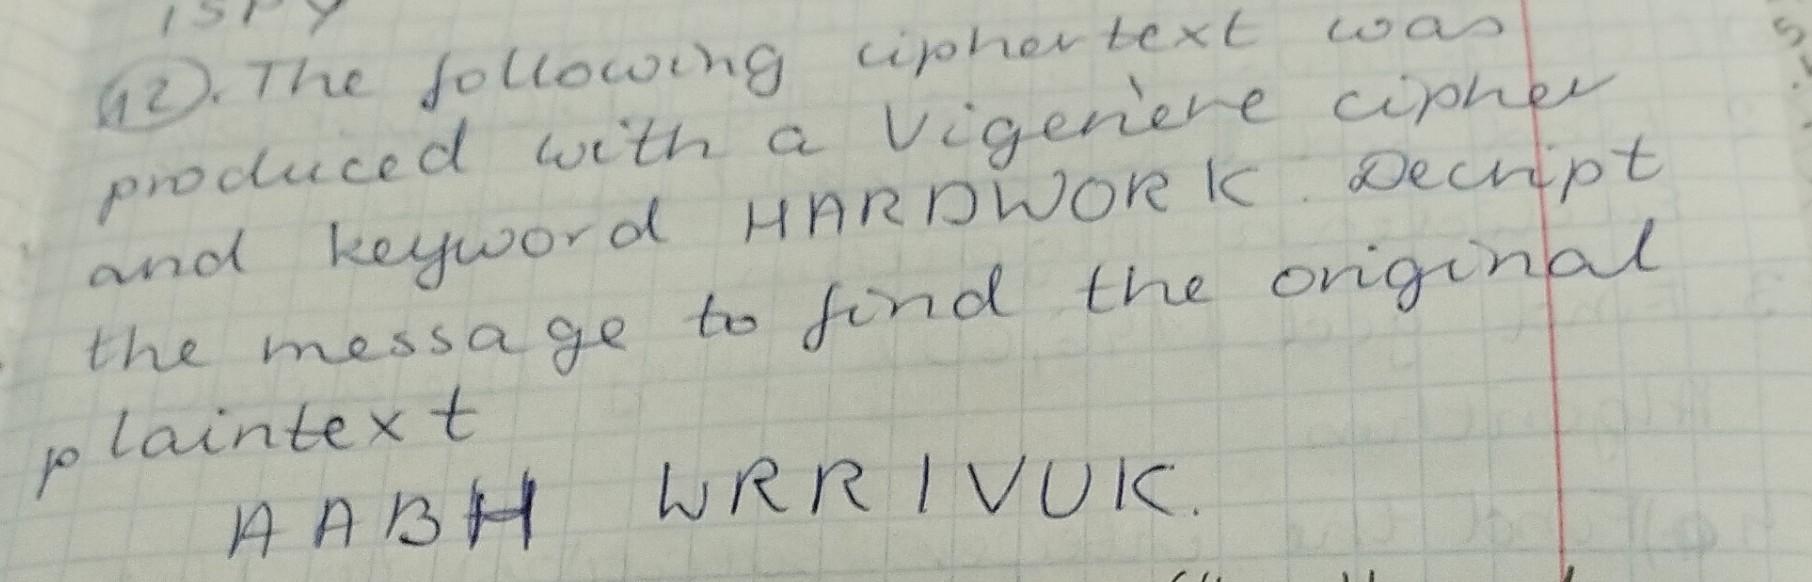 ISPY
12). The following ciphertext was
produced with a Vigenère cipher
and keyword HARDWORK. Decript
the message to find the original
plaintext
AABH WRRIVUK.